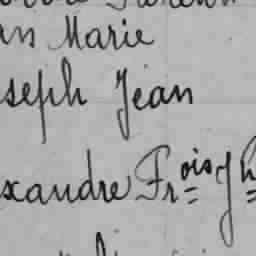 ns Marie
seph Jean
xandre Frois Jh